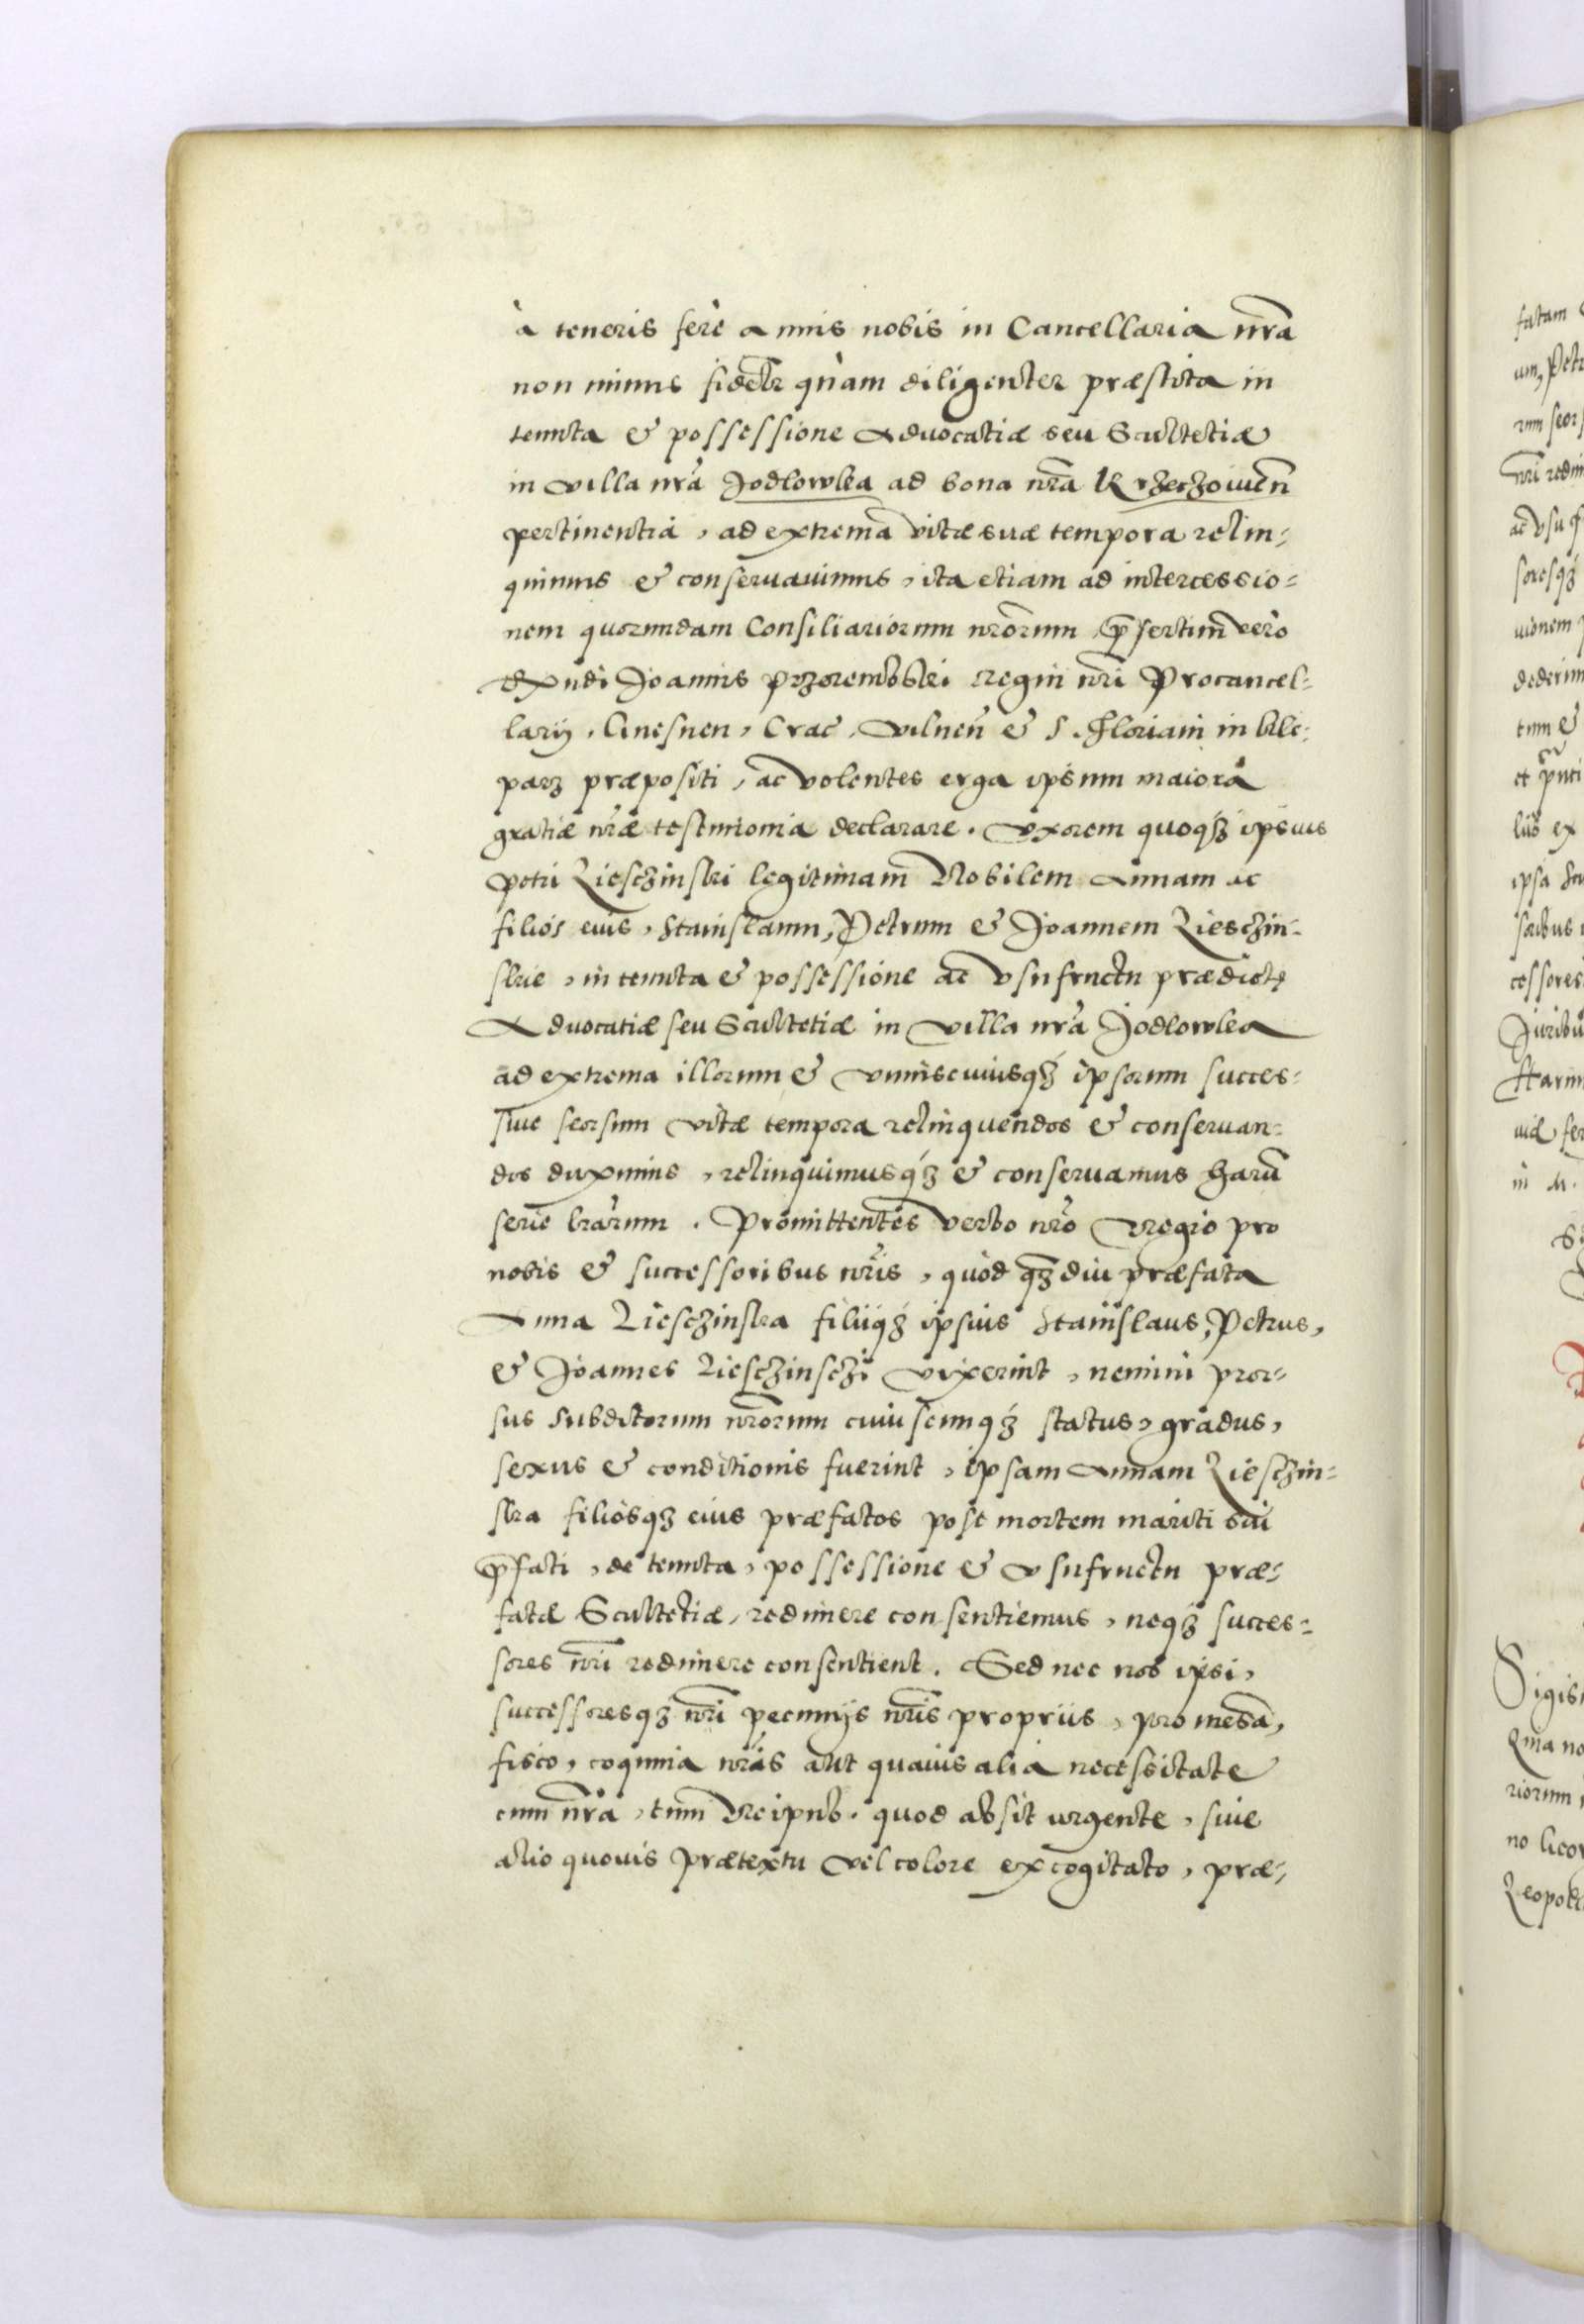 à teneris ferè annis nobis in Cancellaria nr̃a
non minus fidelr̃ quàm diligenter præstita in
tenuta & possessione Advocatiæ seu Scultetiæ
in villa nr̃a Jodlowka ad bona nr̃a Krzeczowien̄
pertinentia, ad extrema vitæ suæ tempora relin-
quimus & conseruauimus, ita etiam ad intercessio-
nem quorundam Consiliariorum nr̃orum, p̄sertim verò
Joannis Przerembski regni nr̃i Procancel-
larij, Gnesnen, Crac̄, Vilnen̄ & S. Floriani in Kle-
parz præpositi, ac volentes erga ipsum maiora
gratiæ nr̃æ testimonia declarare. Vxorem quoqꝫ ipsius
Petri Liesczinski legitimam Nobilem Annam ac
filios eius, Stanislaum, Petrum & Joannem Liesczin-
skie, in tenuta & possessione ac vsufructu prædictę
Advocatiæ seu Scultetiæ in villa nr̃a Jodlowka
ad extrema illorum & vniuscuiusqꝫ ipsorum succes-
siue seorsum vitæ tempora relinquendos & conseruan-
dos duximus, relinquimusqꝫ & conseruamus harū
serie lr̃arum. Promittentes verbo nr̃o regio pro
nobis & successoribus nr̃is, quòd qꝫdiu præfata
Anna Liesczinska filijqꝫ ipsius Stanislaus, Petrus,
& Joannes Liesczinsczi vixerint, nemini pror-
sus subditorum nr̃orum cuiuscunqꝫ status, gradus,
sexus & conditionis fuerint, ipsam Annam Liesczin-
ska filiosqꝫ eius præfatos post mortem mariti sui
p̄fati, de tenuta, possessione & vsufructu præ-
fatæ Scultetiæ, redimere consentiemus, neqꝫ succes-
sores nr̃i redimere consentient. Sed nec nos ipsi,
successoresqꝫ nr̃i pecunijs nr̃is propriis, pro mensa,
fisco, coquina nr̃is aut quauis alia necessitate
cum nr̃a, tum Reipub. quod absit urgente, siue
alio quouis prætextu vel colore excogitato, præ-